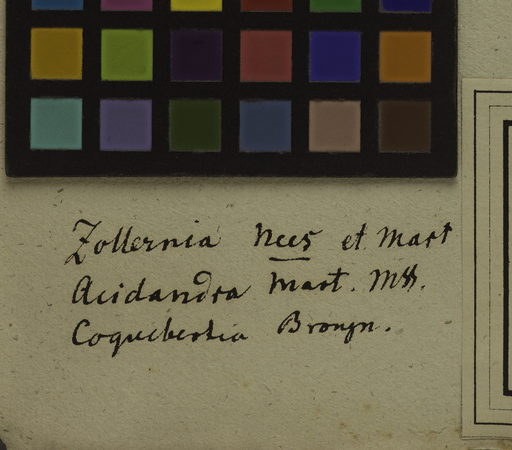 Zollernia Nees et Mart
Acidandra Mart. Mss.
Coquebertia Brongn.